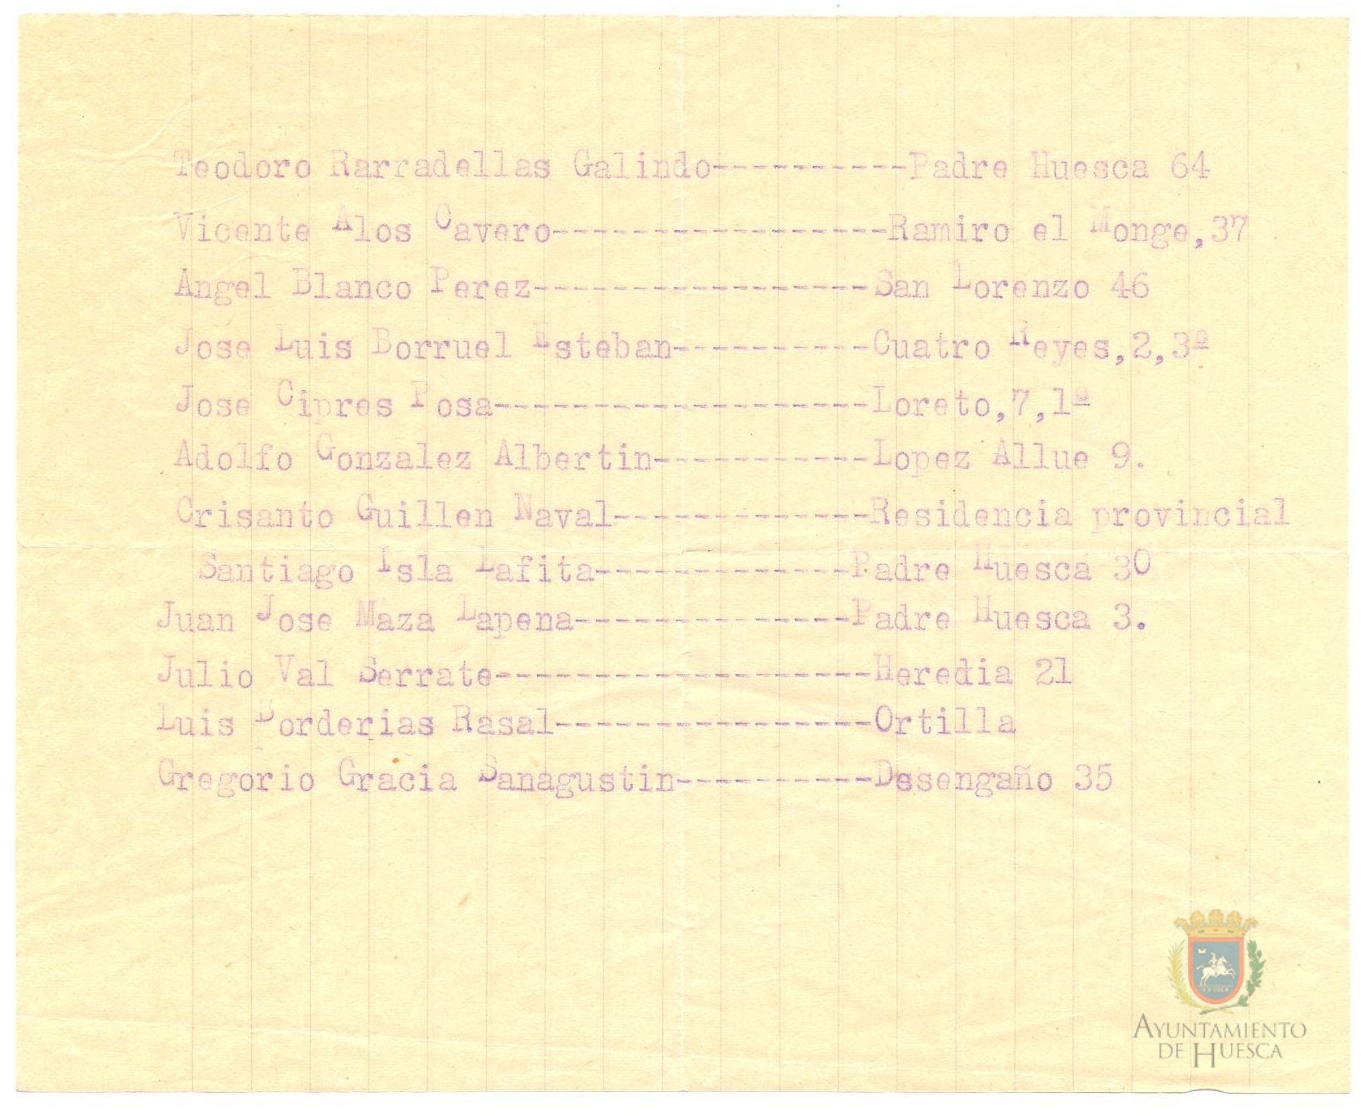 Teodoro Rarradellas Galindo----------Padre Huesca 64
Vicente Alos Cavero-----------------Ramiro el Monge,37
Angel Blanco Perez-----------------San Lorenzo 46
Jose Luis Borruel Esteban----------Cuatro Reyes,2,3º
Jose Cipres Posa-------------------Loreto,7,1º
Adolfo Gonzalez Albertin-----------Lopez Allue 9.
Crisanto Guillen Naval-------------Residencia provincial
Santiago Isla Lafita-------------Padre Huesca 30
Juan Jose Maza Lapena--------------Padre Huesca 3.
Julio Val Serrate-------------------Heredia 21
Luis Borderias Rasal----------------Ortilla
Gregorio Gracia Sanagustin----------Desengaño 35
AYUNTAMIENTO
DE HUESCA